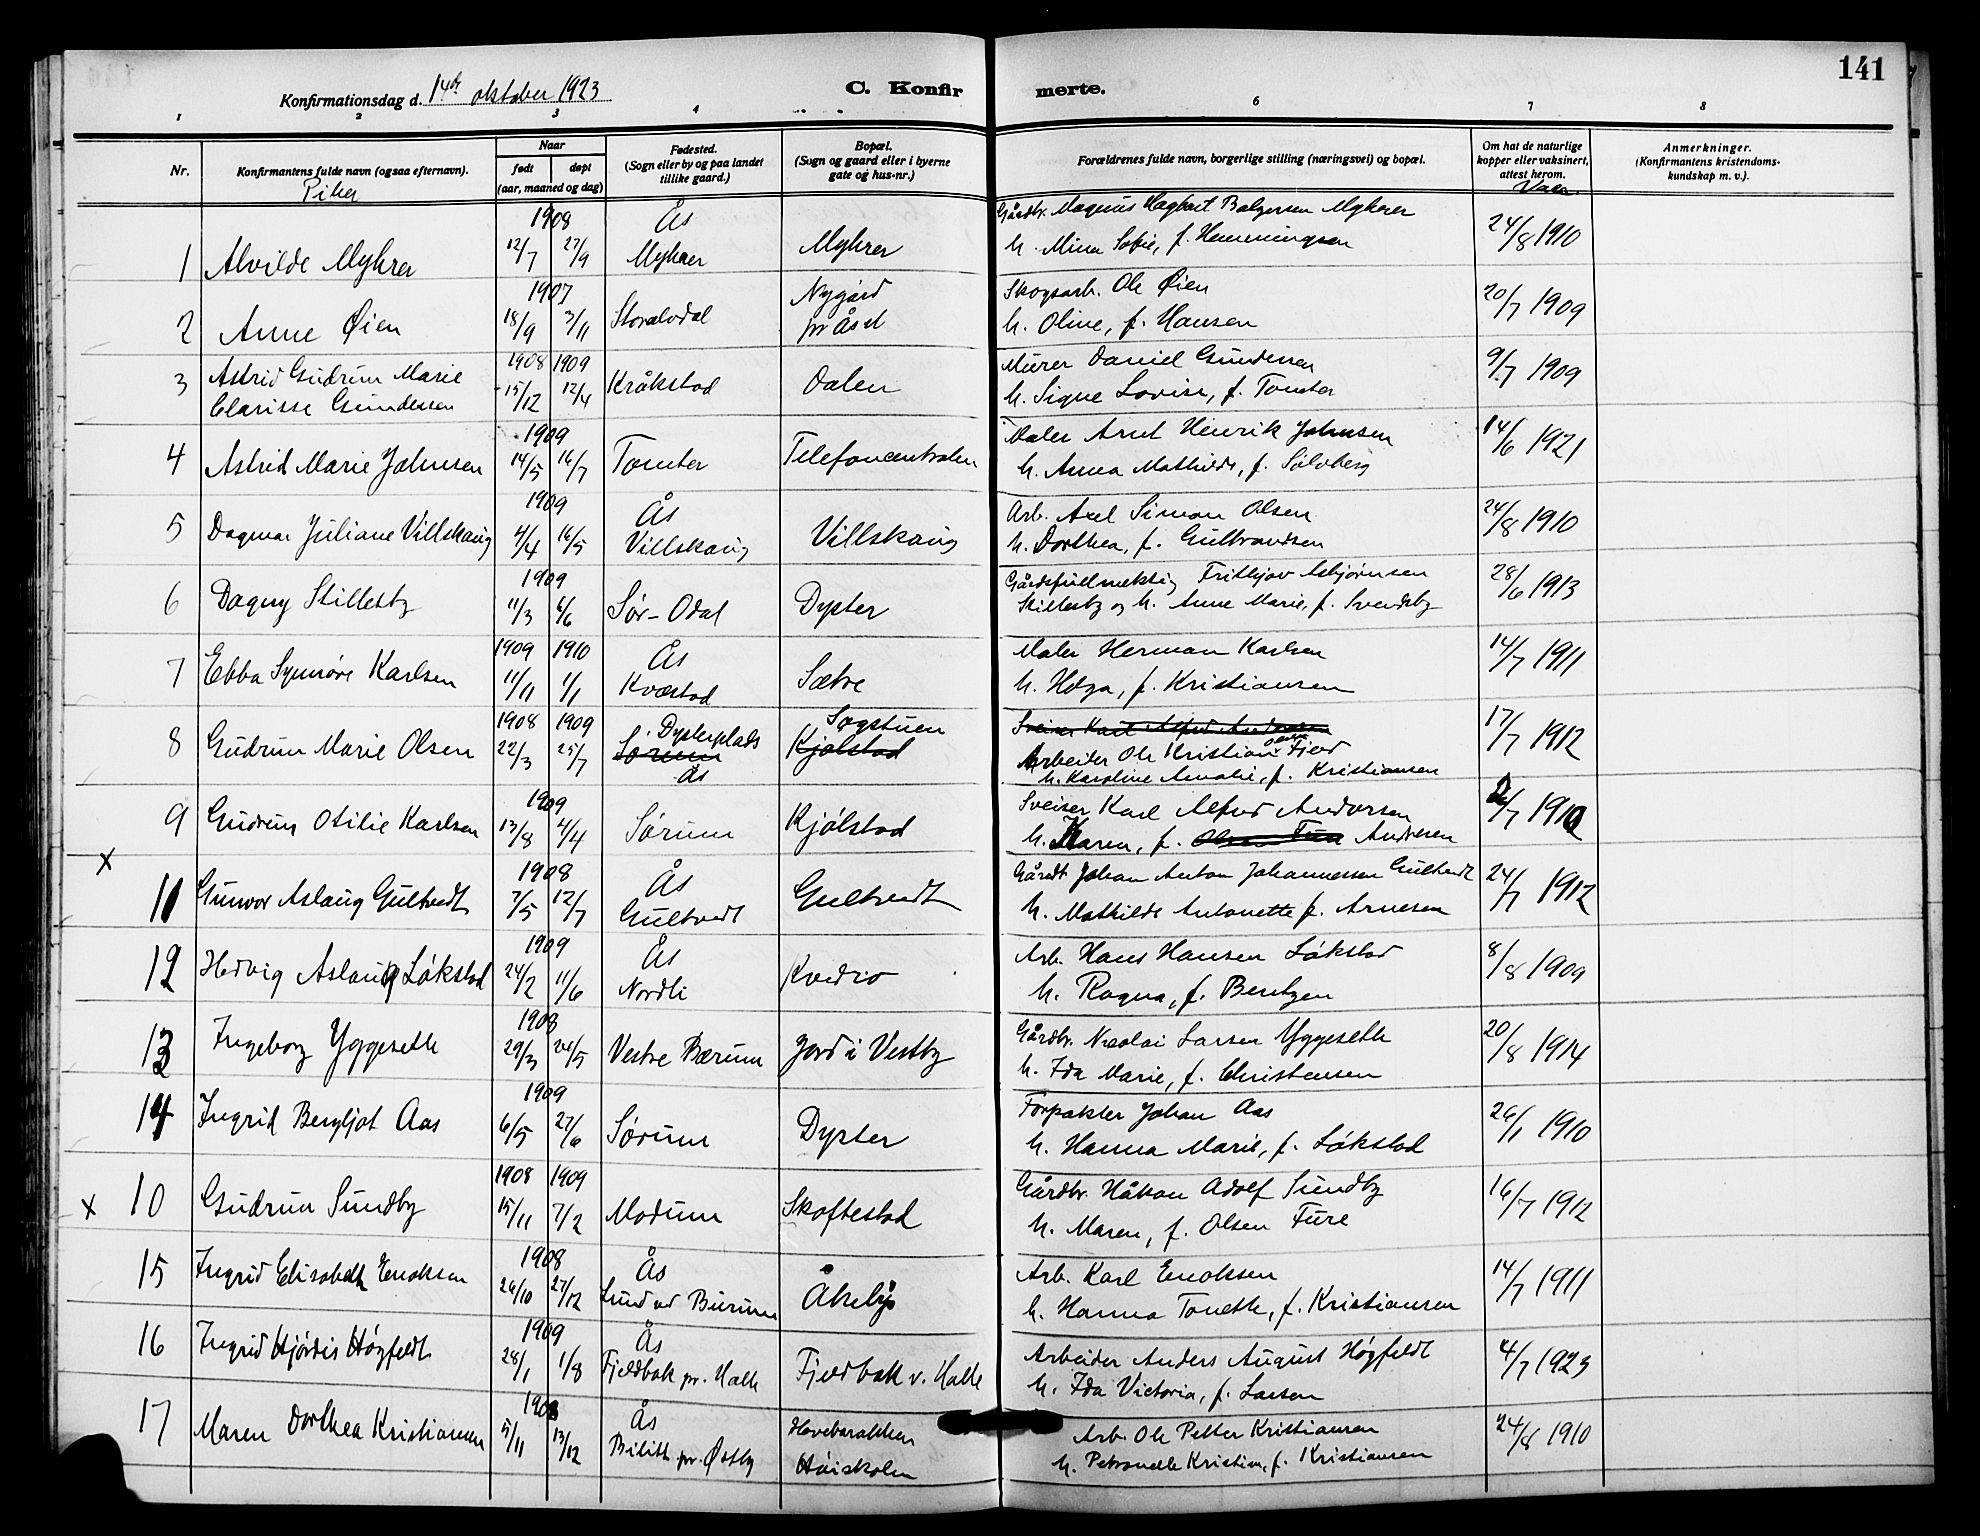 141
Konfirmationsdag d. 14de oktober 1923
C. Konfirmerte.
1 2 3 4 6 7 8
Nr.
Konfirmantens fulde navn (ogsaa efternavn).
Piker
Naar
født døpt
(aar, maaned og dag)
Fødested.
(Sogn eller by og paa landet
tillike gaard.)
Bopæl.
(Sogn og gaard eller i byerne
gate og hus-nr.)
Forældrenes fulde navn, borgerlige stilling (næringsvei) og bopæl.
Om hat de naturlige
kopper eller vaksinert,
attest herom.
Vacc.
Anmerkninger.
(Konfirmantens kristendoms-
kundskap m. v.).
1 Alvilde Myhrer 1908 12/7 27/9 Ås Myhrer Myhrer
Gårdbr. Magnus Hagbart Balzersen Myhrer
h. Mina Sofie, f. Hemmingsen 24/8 1910
2 Anne Øien 1907 18/9 3/11 Storelvdal Nygård pr Ås st
Skogsarb. Ole Øien
h. Oline, f. Hansen 20/7 1909
3 Astrid Gudrun Marie
Clarisse Gundersen 1908 15/12 1909 12/4 Kråkstad Dalen
Murer Daniel Gundersen
h. Signe Lovise, f. Tomter 9/7 1909
4 Astrid Marie Johnsen 1909 14/5 16/7 Tomter Telefoncentralen
Maler Arnt Henrik Johnsen
h. Anna Mathilde, f. Solberg 14/6 1921
5 Dagmar Juliane Villskaug 1909 4/4 16/5 Ås Villskaug Villskaug
Arb. Axel Simon Olsen
h. Dorthea, f. Gulbrandsen 24/8 1910
6 Dagny Skillesby 1909 11/3 6/6 Sør-Odal Dyster
Gårdsfullmektig Frithjov Asbjørnsen
Skillesby og h. Anne Marie, f. Svendsby 28/6 1913
7 Ebba Synnøve Karlsen 1909 11/11 1910 1/1 Ås Kvæstad Sætre
Maler Herman Karlsen
h. Helga, f. Kristiansen 14/7 1911
8 Gudrun Marie Olsen 1908 22/3 1909 25/7 Dysterplads Sørum Ås Sogstuen Kjølstad
Sveiser Karl Alfred Andersen
Arbeider Ole Kristian Fjeld
h. Karoline Amalie, f. Kristiansen 17/7 1912
9 Gudrun Otilie Karlsen 1909 13/8 4/4 Sørum Kjølstad
Sveiser Karl Alfred Andersen
h. Karen, f. Olsen Fure Andresen 2/7 1910
x
11 Gunvor Aslaug Gultvedt 1908 7/5 12/7 Ås Gultvedt Gultvedt
Gårdbr Johan Anton Johannessen Gultvedt
h. Mathilde Antonette f. Arnesen 24/7 1912
12 Hedvig Aslaug Løkstad 1909 24/2 11/6 Ås Nordli Kvedro
Arb. Hans Hansen Løkstad
h. Ragna, f. Bentzen 8/8 1909
13 Ingeborg Yggeseth 1908 29/3 24/5 Vestre Bærum Jord i Vestby
Gårdbr. Nicolai Larsen Yggeseth
h. Ida Marie, f. Christensen 20/8 1914
14 Ingrid Bergljot Aas 1909 6/5 27/6 Sørum Dyster
Forpakter Johan Aas
h. Hanna Marie, f. Løkstad 26/1 1910
x 10 Gudrun Sundby 1908 15/11 1909 7/2 Modum Skoftestad
Gårdbr. Håkon Adolf Sundby
h. Maren, f. Olsen Fure 16/7 1912
15 Ingrid Elisabeth Enoksen 1908 26/10 27/12 Ås Lund ved Burum Åkebø
Arb. Karl Enoksen
h. Hanna Tonette, f. Kristiansen 14/7 1911
16 Ingrid Hjørdis Høgfeldt 1909 28/1 1/8 Ås Fjeldbak pr. Holtt Fjeldbak v. Holtt
Arbeider Anders August Høgfeldt
h. Ida Victoria, f. Larsen 4/7 1923
17 Maren Dorthea Kristiansen 1908 5/11 13/12 Ås Bilitt pr. Østby Havebarakken Høiskolen
Arb. Ole Petter Kristiansen
h. Petronelle Kristine, f. Kristiansen 24/8 1910